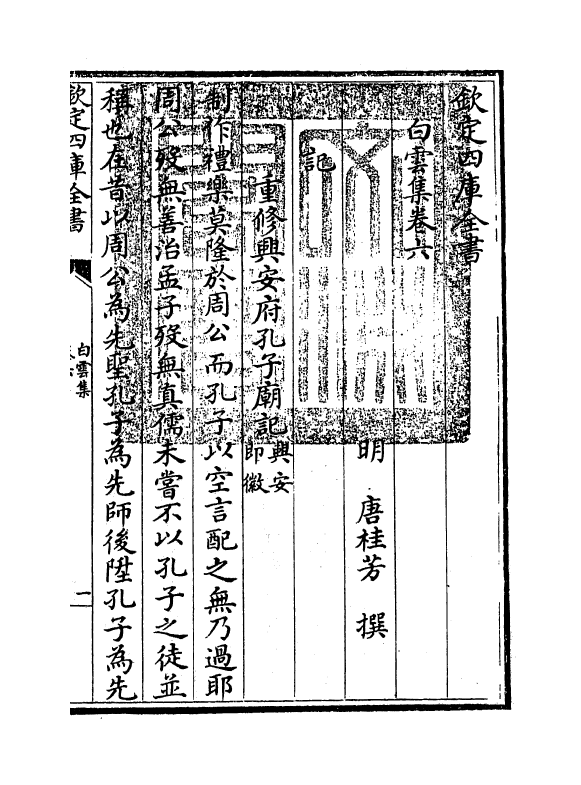 欽定四庫全書
白雲集卷六
明 唐桂芳 撰
記
重修興安府孔子廟記興安
即徽
制作禮樂莫隆於周公而孔子以空言配之無乃過耶
周公歿無善治孟子歿無真儒未嘗不以孔子之徒並
稱也在昔以周公為先聖孔子為先師後陞孔子為先
欽定四庫全書
白雲集